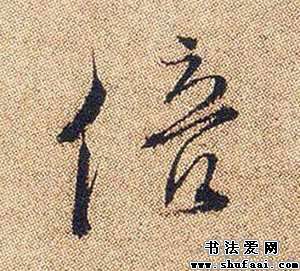 倍
书法爱网
www.shufaai.com